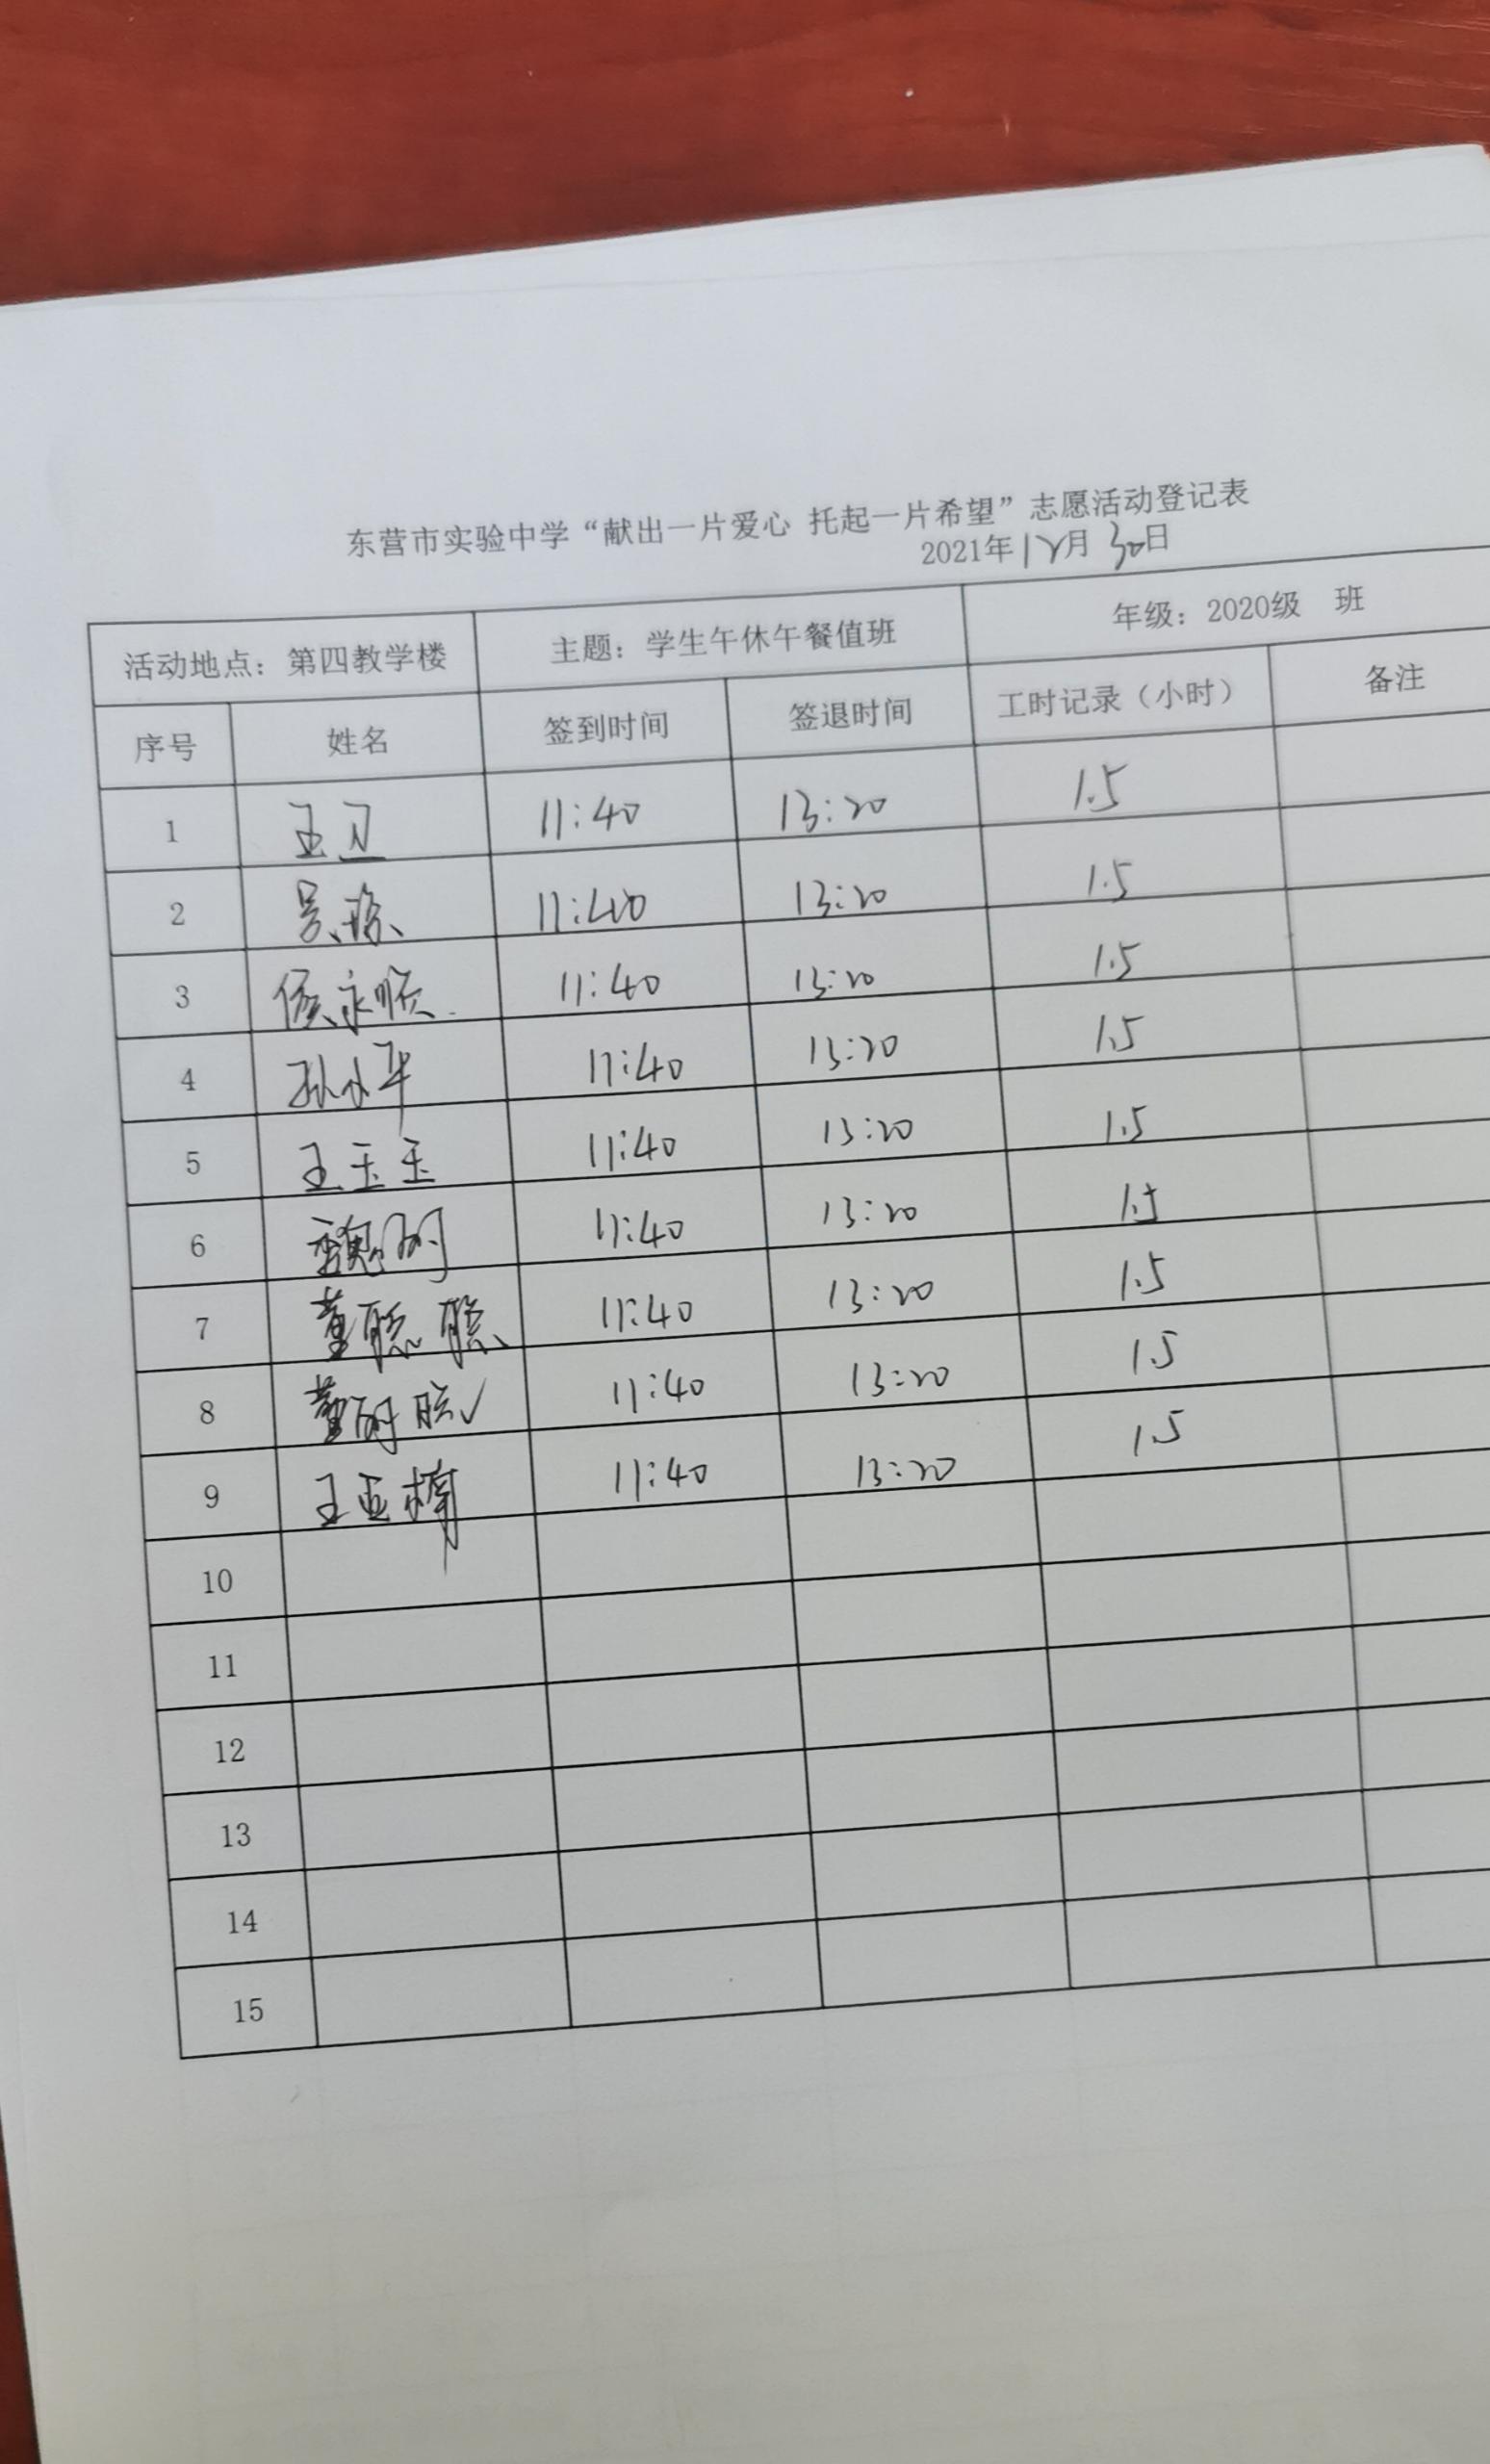 东营市实验中学“献出一片爱心 托起一片希望”志愿活动登记表
2021年12月30日
活动地点：第四教学楼 主题：学生午休午餐值班 年级：2020级 班
序号 姓名 签到时间 签退时间 工时记录（小时） 备注
1 王卫 11:40 13:20 1.5
2 吴琼 11:40 13:20 1.5
3 侯永顺 11:40 13:20 1.5
4 孙小华 11:40 13:20 1.5
5 王玉玉 11:40 13:20 1.5
6 魏 11:40 13:20 1.5
7 董聪聪 11:40 13:20 1.5
8 董 11:40 13:20 1.5
9 王亚楠 11:40 13:20 1.5
10
11
12
13
14
15